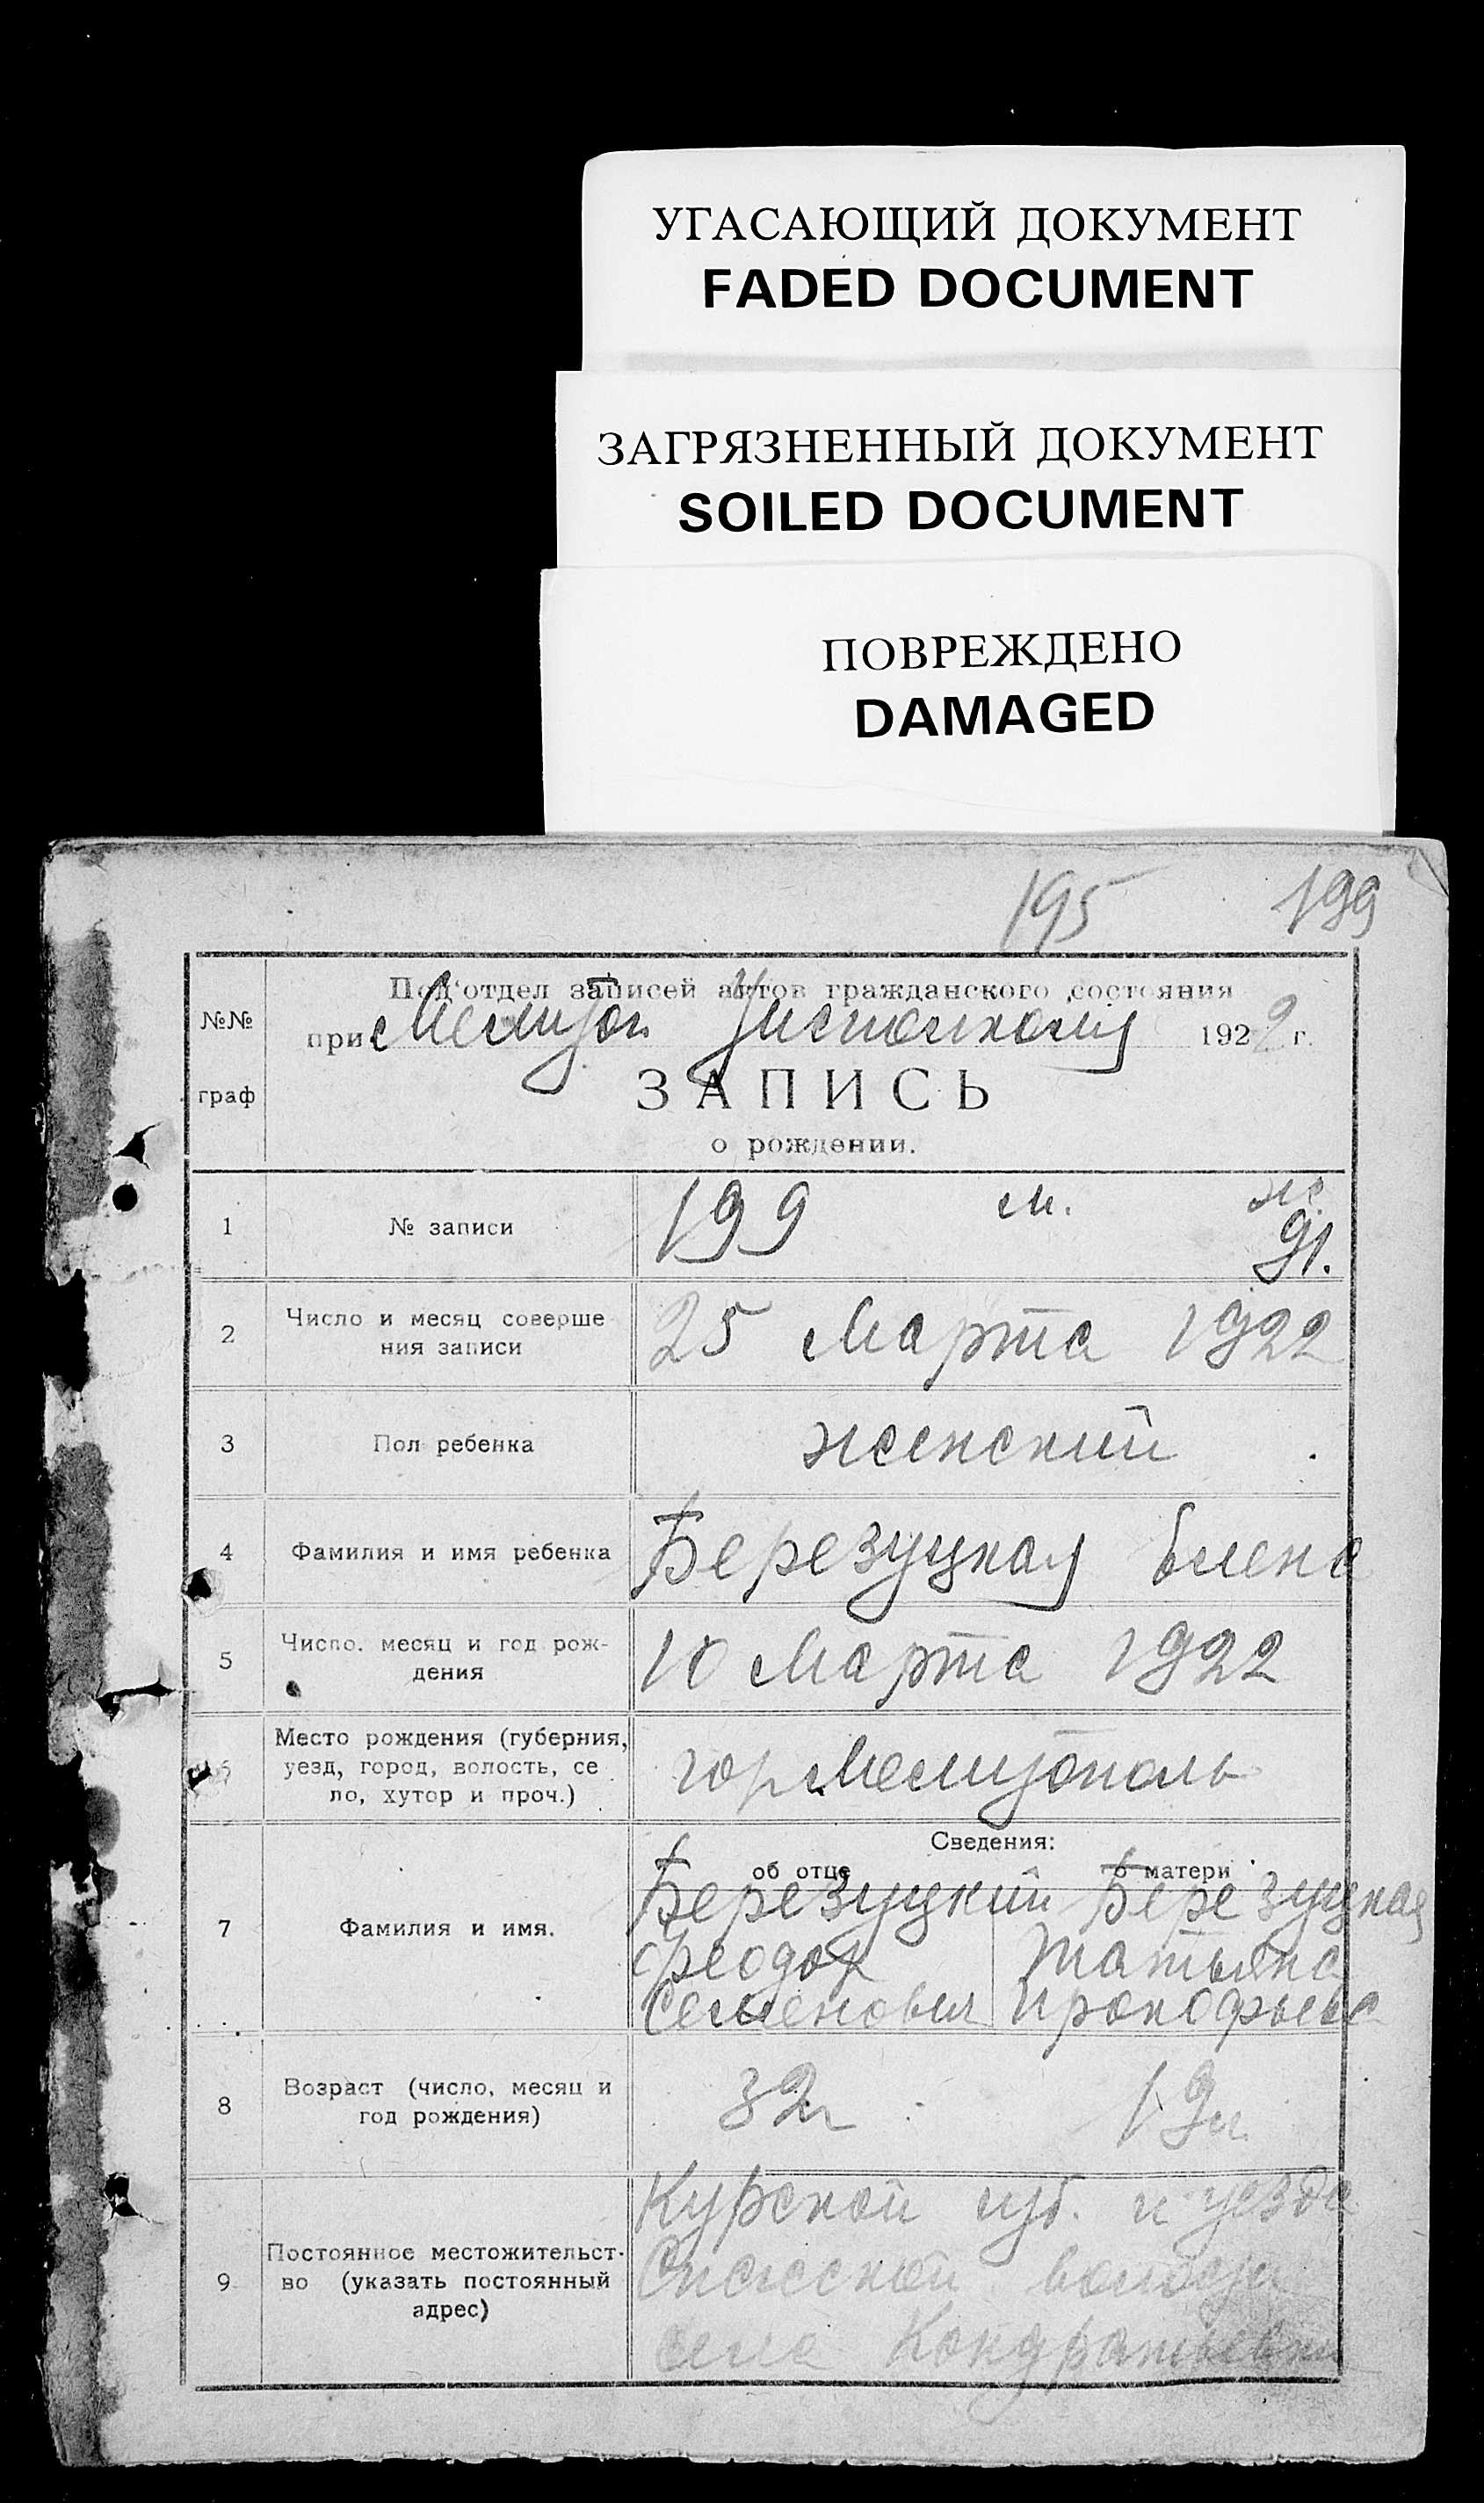 УГАСАЮЩИЙ ДОКУМЕНТ
FADED DOCUMENT
ЗАГРЯЗНЕННЫЙ ДОКУМЕНТ
SOILED DOCUMENT
ПОВРЕЖДЕНО
DAMAGED
195 199
№№ граф
Под'отдел записей актов гражданского состояния
при Мелитоп. 1922 г.
ЗАПИСЬ
о рождении.
1 № записи 199 м. ж. 91.
2 Число и месяц соверше
ния записи
25 Марта 1922
3 Пол ребенка женский
4 Фамилия и имя ребенка Березуцкая Елена
5 Число. месяц и год рож-
дения
10 Марта 1922
6 Место рождения (губерния,
уезд, город, волость, се
ло, хутор и проч.)
гор Мелитополь
Сведения:
об отце о матери
7 Фамилия и имя.
Березуцкий Березуцкая
Феодор Татьяна
Семенович Прокофьева
8 Возраст (число, месяц и
год рождения)
32 19
9 Постоянное местожительст-
во (указать постоянный
адрес)
Курской губ. и уезда
Спасской волости
села